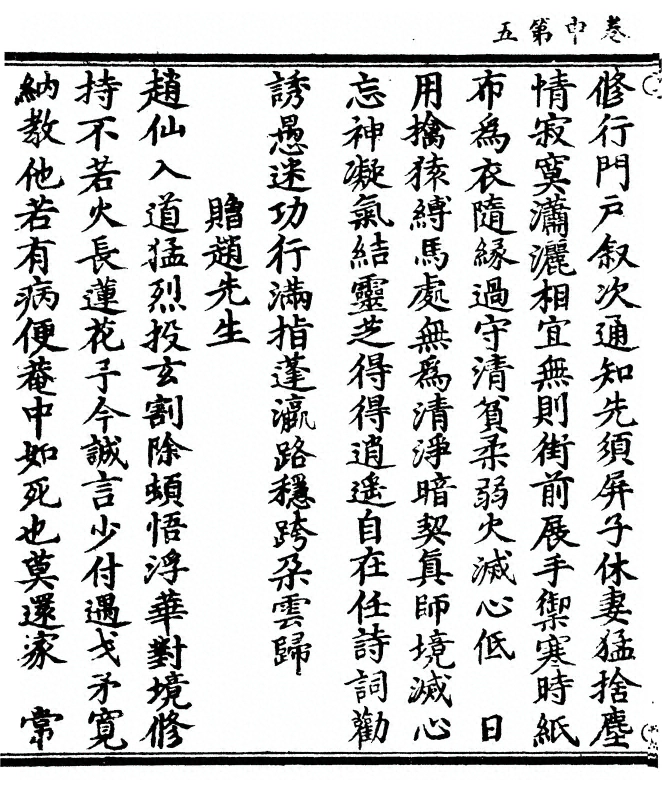 卷中第五
修行門戶叙次通知先須屏子休妻猛捨塵
情寂寞瀟灑相宜無則街前展手禦寒時紙
布為衣隨緣過守清貧柔弱火滅心低　日
用擒猿縛馬處無為清淨暗契真師境滅心
忘神凝氣結靈芝得得逍遙自在任詩詞勸
誘愚迷功行滿指蓬瀛路穩跨朶雲歸
贈趙先生
趙仙入道猛烈投玄割除頓悟浮華對境修
持不若火長蓮花予今誠言少付遇戈矛寬
納教他若有病便菴中如死也莫還家　常